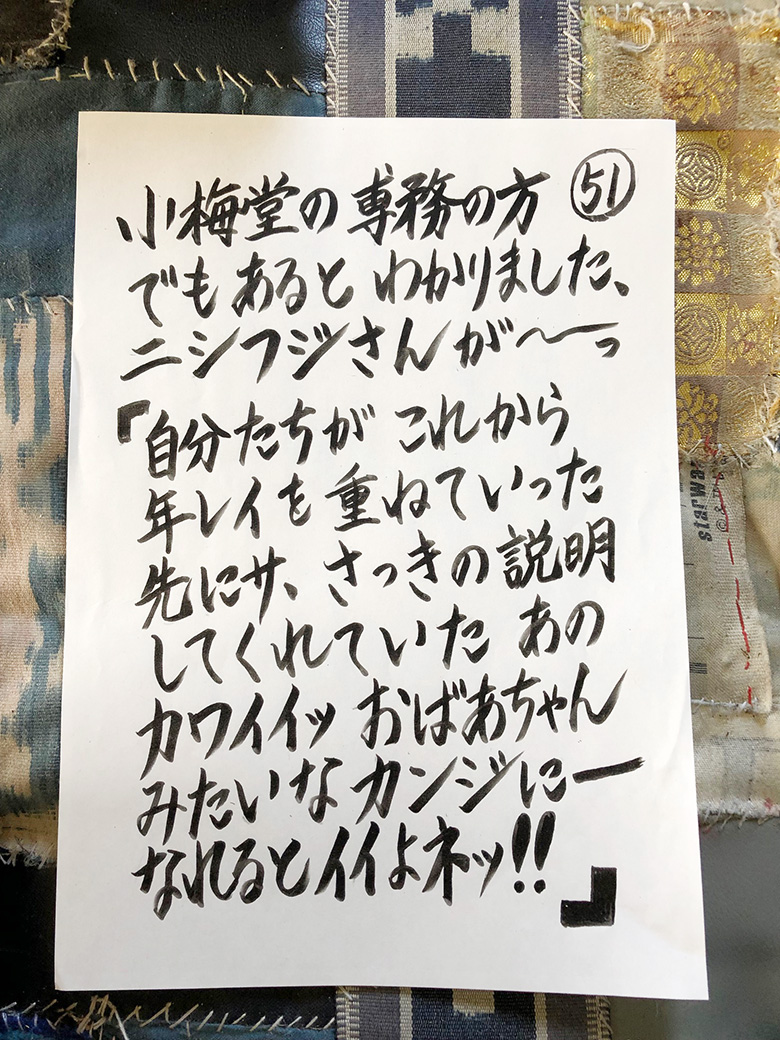 小梅堂の専務の方 51
でもあるとわかりました、
ニシフジさんが〜っ
『自分たちがこれから
年レイを重ねていった
先にサ、さっきの説明
してくれていたあの
カワイイッおばあちゃん
みたいなカンジにー
なれるとイイよネッ!!』
starwa